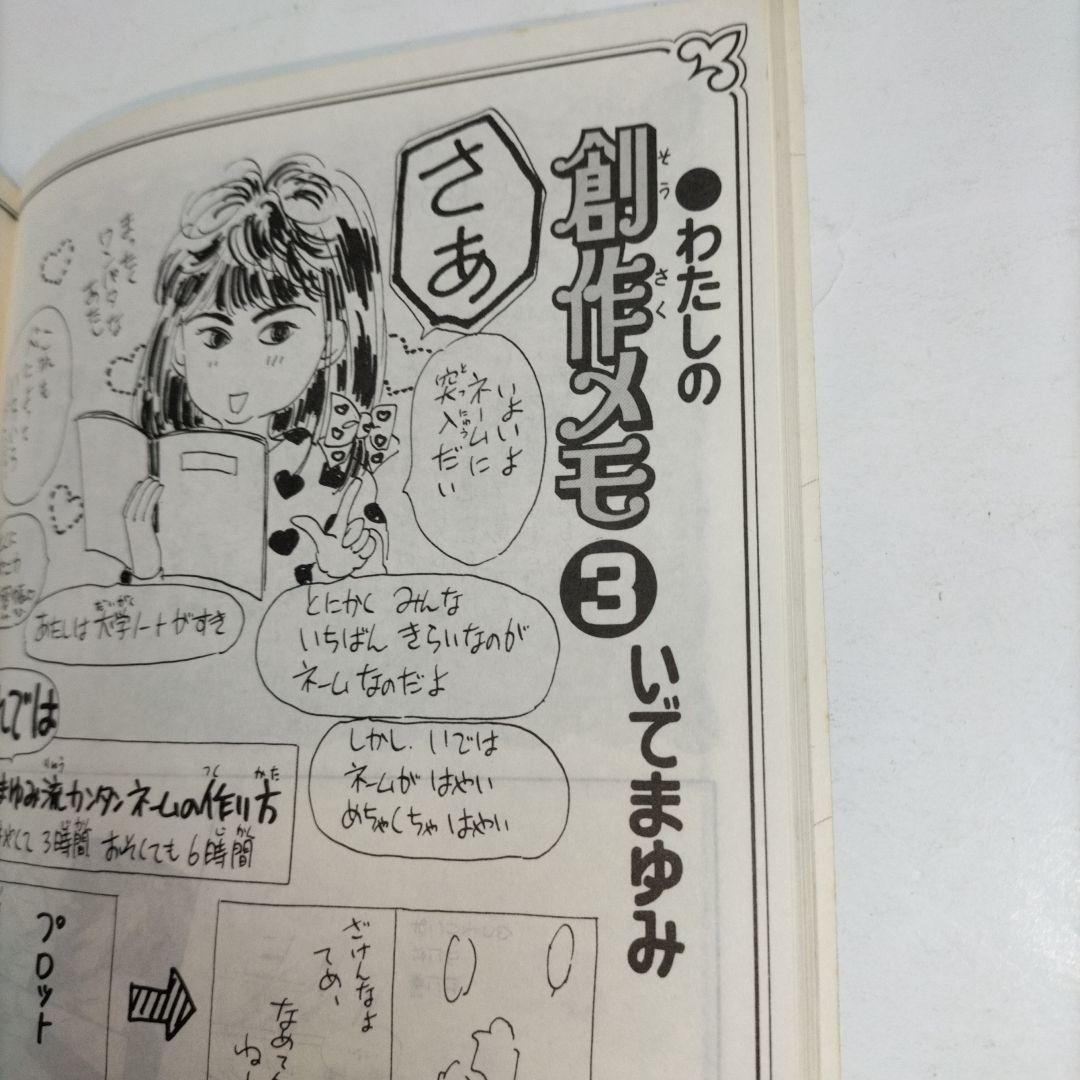 ●わたしの
創作メモ3
そうさく
いでまゆみ
さあ
いよいよ
ネームに
突入だい
とつにゅう
まったく
あたし
あたしは大学ノートがすき
だいがく
とにかく みんな
いちばん きらいなのが
ネームなのだよ
しかし、いでは
ネームが はやい
めちゃくちゃ はやい
では
まゆみ流カンタンネームの作り方
りゅう
つく
かた
3時間 おそくても6時間
じかん
じかん
プロット
ざけんなよ
てめー
なめてん